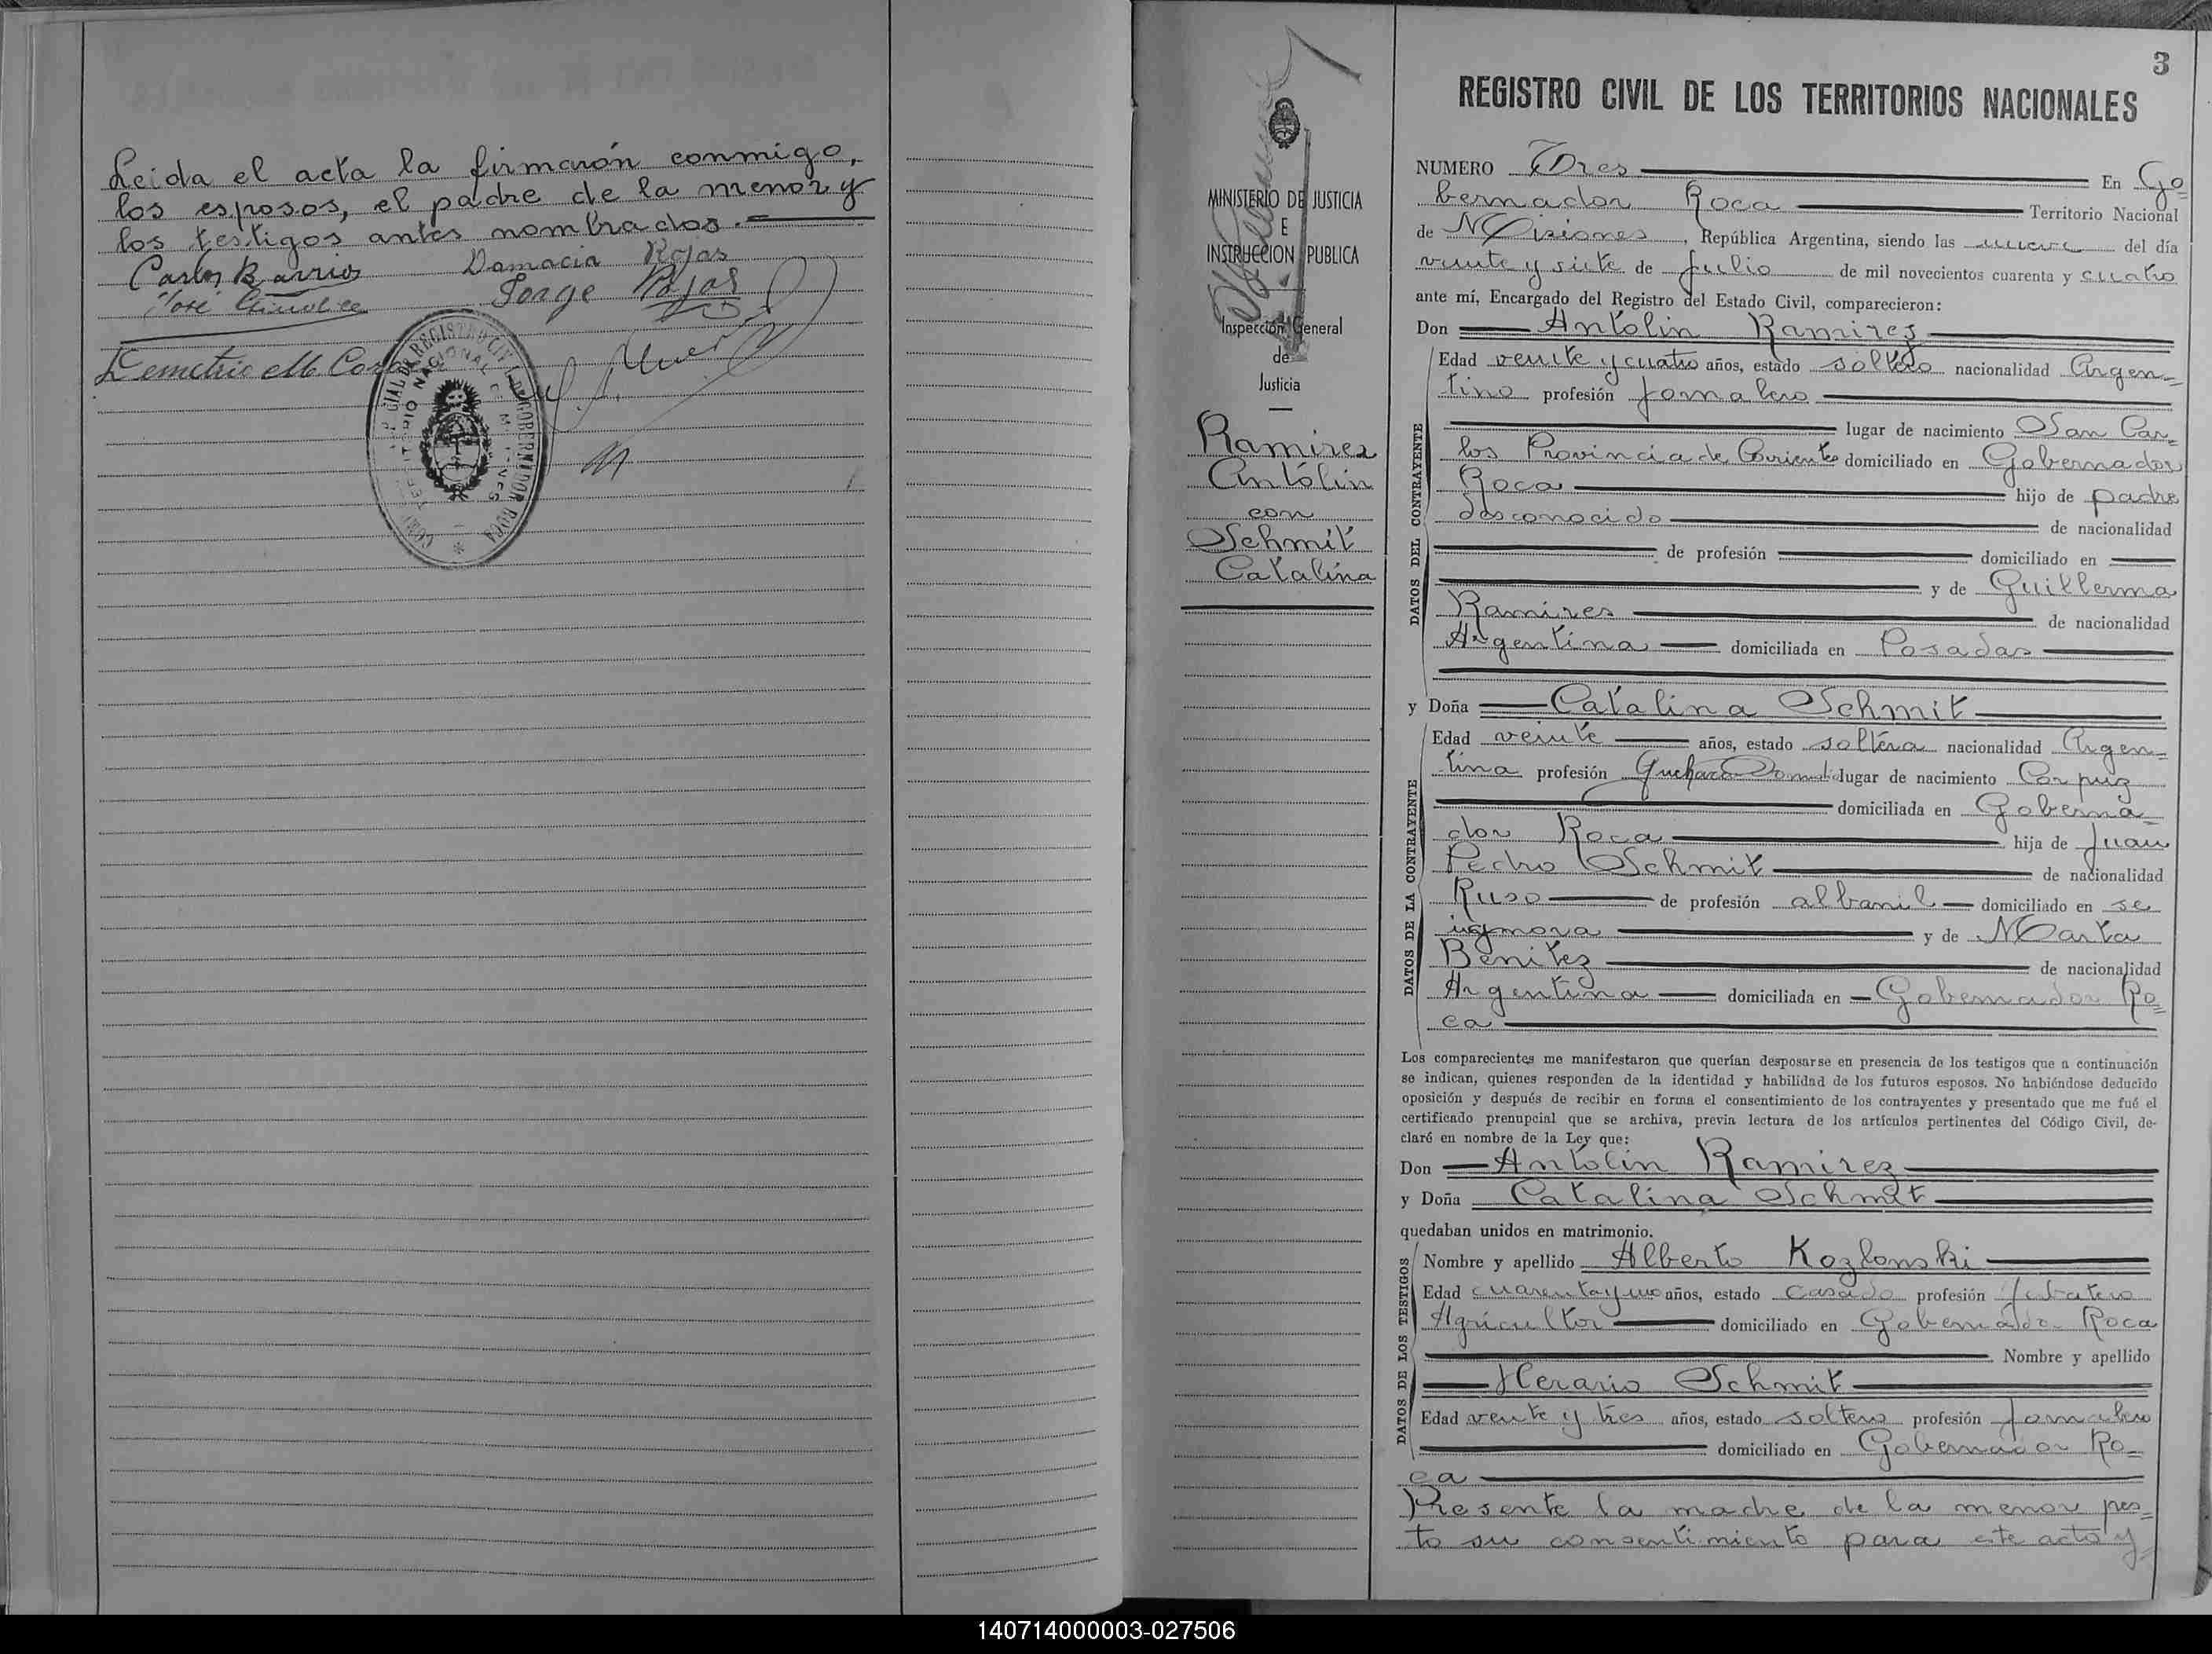 Leida el acta la firmaron conmigo,
los esposos, el padre de la menor y
los testigos antes nombrados.
Carlos Barrios Damacia Rojas
José Jorge Rojas
Demetrio M.
REGISTRO CIVIL
GOBERNADOR ROCA
3
REGISTRO CIVIL DE LOS TERRITORIOS NACIONALES
MINISTERIO DE JUSTICIA
E
INSTRUCCION PUBLICA
Inspección General
de
Justicia
Ramirez
Antolin
con
Schmit
Catalina
NUMERO Tres En Go
bernador Roca Territorio Nacional
de Misiones, República Argentina, siendo las nueve del día
veinte y siete de Julio de mil novecientos cuarenta y cuatro
ante mí, Encargado del Registro del Estado Civil, comparecieron:
Don Antolin Ramires
DATOS DEL CONTRAYENTE
Edad veinte y cuatro años, estado soltero nacionalidad Argen-
tino profesión Jornalero
lugar de nacimiento San Car-
los Provincia de Corrientes domiciliado en Gobernador
Roca hijo de padre
desconocido de nacionalidad
de profesión domiciliado en
y de Guillerma
Ramires de nacionalidad
Argentina domiciliada en Posadas
y Doña Catalina Schmit
DATOS DE LA CONTRAYENTE
Edad veinte años, estado soltera nacionalidad Argen-
tina profesión lugar de nacimiento Corpuz
domiciliada en Goberna-
dor Roca hija de Juan
Pedro Schmit de nacionalidad
Ruso de profesión albanil domiciliado en se
ignora y de Marta
Benitez de nacionalidad
Argentina domiciliada en Gobernador Ro-
ca
Los comparecientes me manifestaron que querían desposarse en presencia de los testigos que a continuación
se indican, quienes responden de la identidad y habilidad de los futuros esposos. No habiéndose deducido
oposición y después de recibir en forma el consentimiento de los contrayentes y presentado que me fué el
certificado prenupcial que se archiva, previa lectura de los artículos pertinentes del Código Civil, de-
claré en nombre de la Ley que:
Don Antolin Ramirez
y Doña Catalina Schmit
quedaban unidos en matrimonio.
DATOS DE LOS TESTIGOS
Nombre y apellido Alberto Kozlonski
Edad cuarenta y uno años, estado casado profesión
Agricultor domiciliado en Gobernador Roca
Nombre y apellido
Herario Schmit
Edad veinte y tres años, estado soltero profesión Jornalero
domiciliado en Gobernador Ro-
ca
Presente la madre de la menor pres-
to su consentimiento para este acto y
140714000003-027506